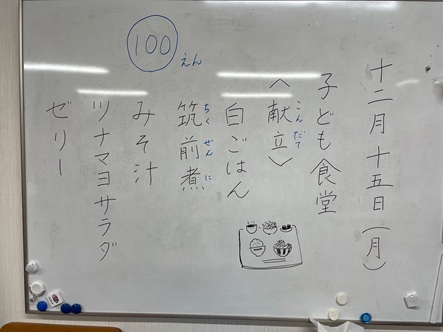 十二月十五日(月)
子ども食堂
〈献立〉
こんだて
白ごはん
筑前煮
ちくぜんに
みそ汁
ツナマヨサラダ
ゼリー
100えん